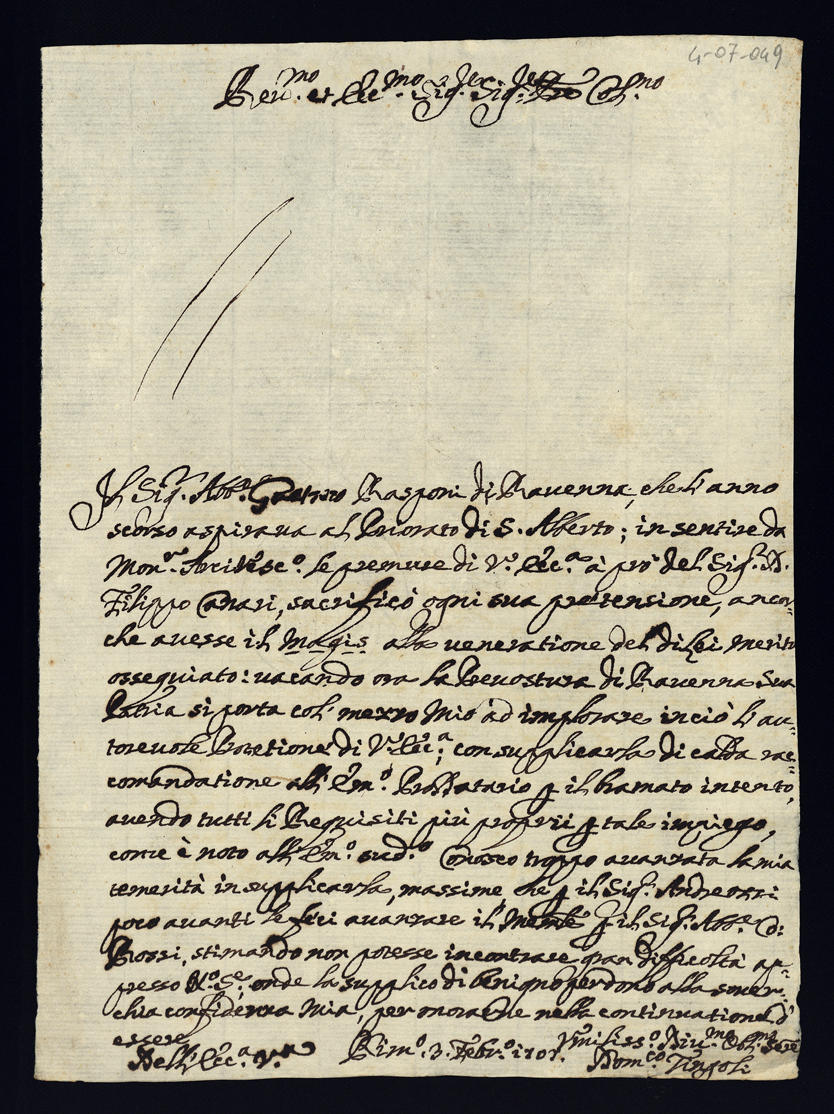 4-07-049
Rev.mo et Ecc.mo Sig.r Sig.r Pron Col.mo
Il Sig.r Abb.e Gaetano Rasponi di Ravenna, che l'anno
scorso aspiraua al Priorato di S. Alberto; in sentire da
Mon.r Arciuesc.o le premure di V.a Ecc.a à pro del Sig.r D.
Filippo Canari, sacrificò ogni sua pretensione, ancor-
che auesse il Magis alla ueneratione del di Lei merito
ossequiato: uacando ora la Preuostura di Ravenna Sua
Patria si porta col mezzo mio ad implorare in ciò l'au-
toreuole Protetione di V.a Ecc.a, con supplicarla di calda rac-
comandatione all'Em.o Prodatario p il bramato intento,
auendo tutti li Requisiti più proprii p tale impiego,
come è noto all'Em.o sud.o Conosco troppo auanzata la mia
temerità in supplicarla, massime che p il Sig.r Andreozzi
poco auanti le feci auanzare il Memle p il Sig.r Abb.e
Rossi, stimando non potesse incontrare gran difficoltà ap-
presso N.o S.e, onde la supplico di benigno perdono alla souer-
chia confidenza mia, per nella continuatione d'
essere
Dell'Ecc.a V.a Rim.o 3. Febr.o 1701. Vmiliss.o Diu.mo Obl.mo Sere
Dom.co Tingoli